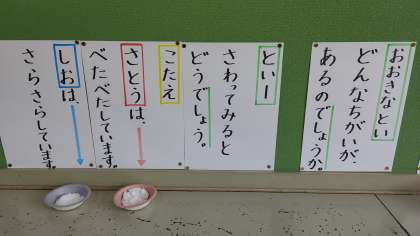 おおきなとい
どんなちがいが、
あるのでしょうか。
といー
さわってみると
どうでしょう。
こたえ
さとうは、
べたべたしています。
しおは、
さらさらしています。